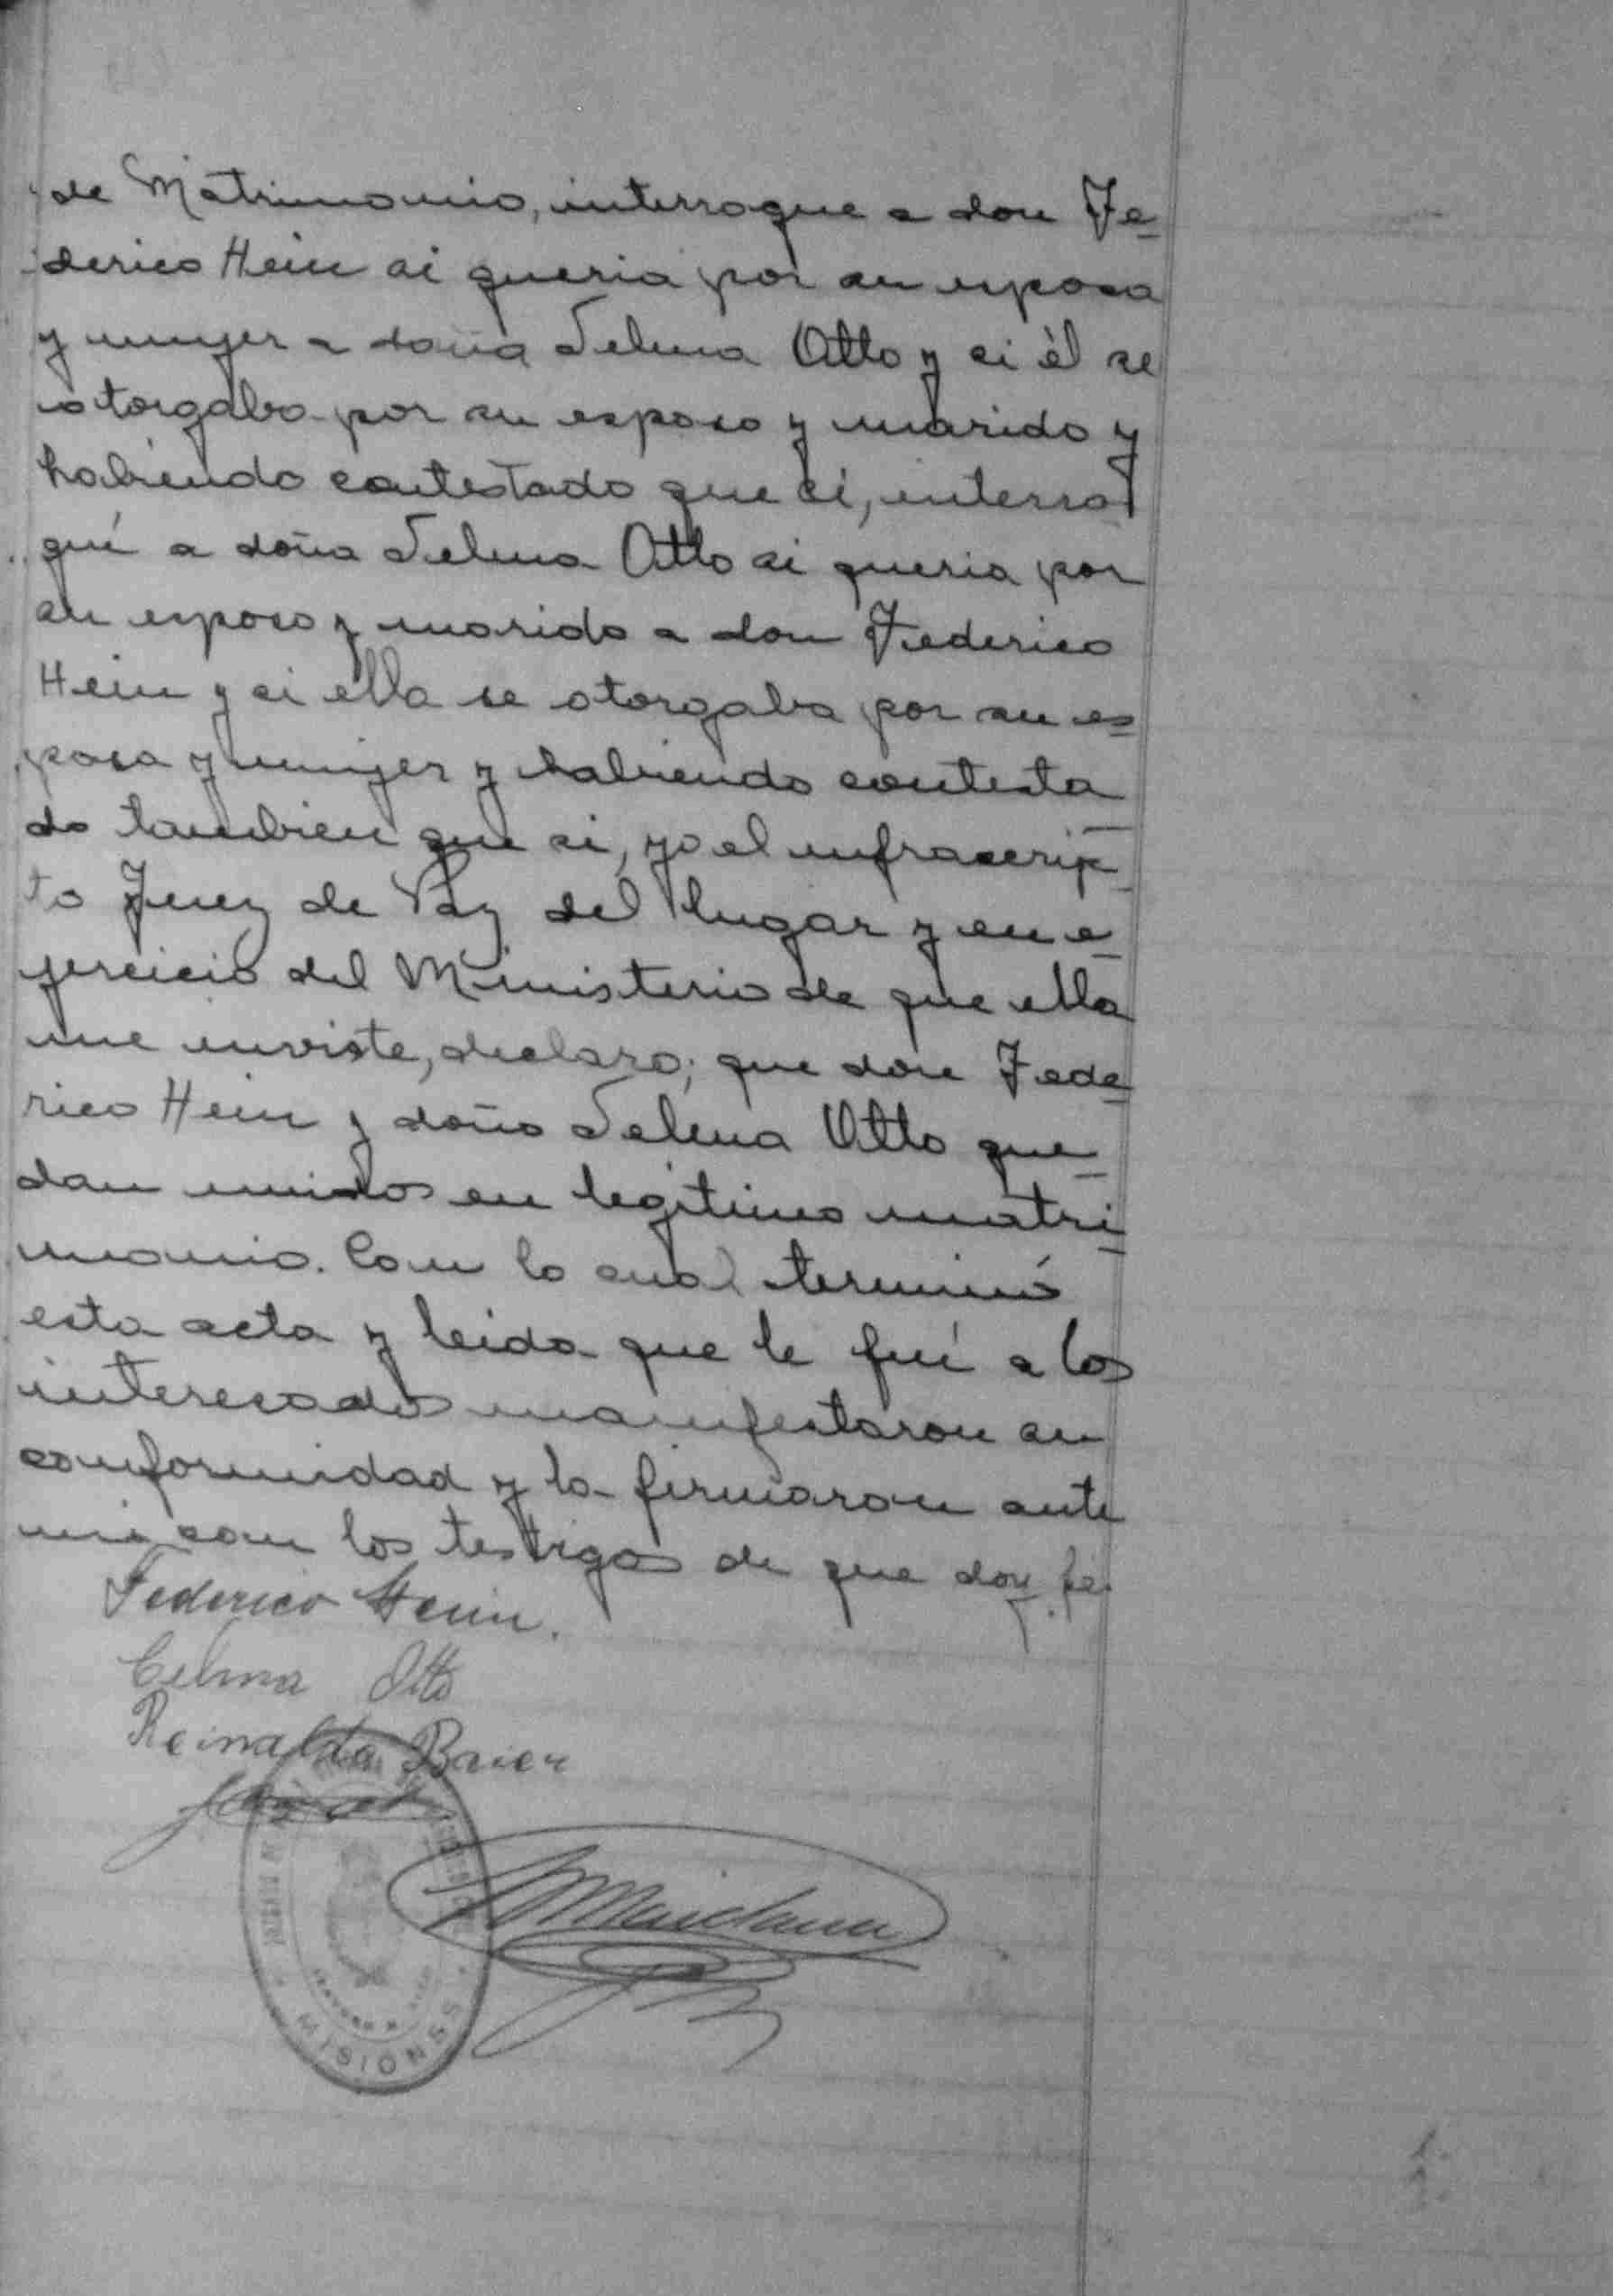 de Matrimonio, interrogue a don Fe-
derico Hein si queria por su esposa
y mujer a doña Selma Otto y si èl se
otorgaba por su esposo y marido y
habiendo contestado que sí, interro
gué a doña Selma Otto si queria por
su esposo y marido a don Federico
Hein y si ella se otorgaba por su es-
posa y mujer y habiendo contesta
do tambien que si, yo el infrascrip-
to Juez de Paz del lugar y en e-
jercicio del Ministerio de que ella
me inviste, declaro; que don Fede-
rico Hein y doña Selma Otto que-
dan unidos en legítimo matri-
monio. Con lo cual terminó
esta acta y leida que le fué a los
interesados manifestaron su
conformidad y la firmaron ante
mi con los testigos de que doy fé.
Federico Hein.
Celma Otto
Reinaldo Baier
MISIONES